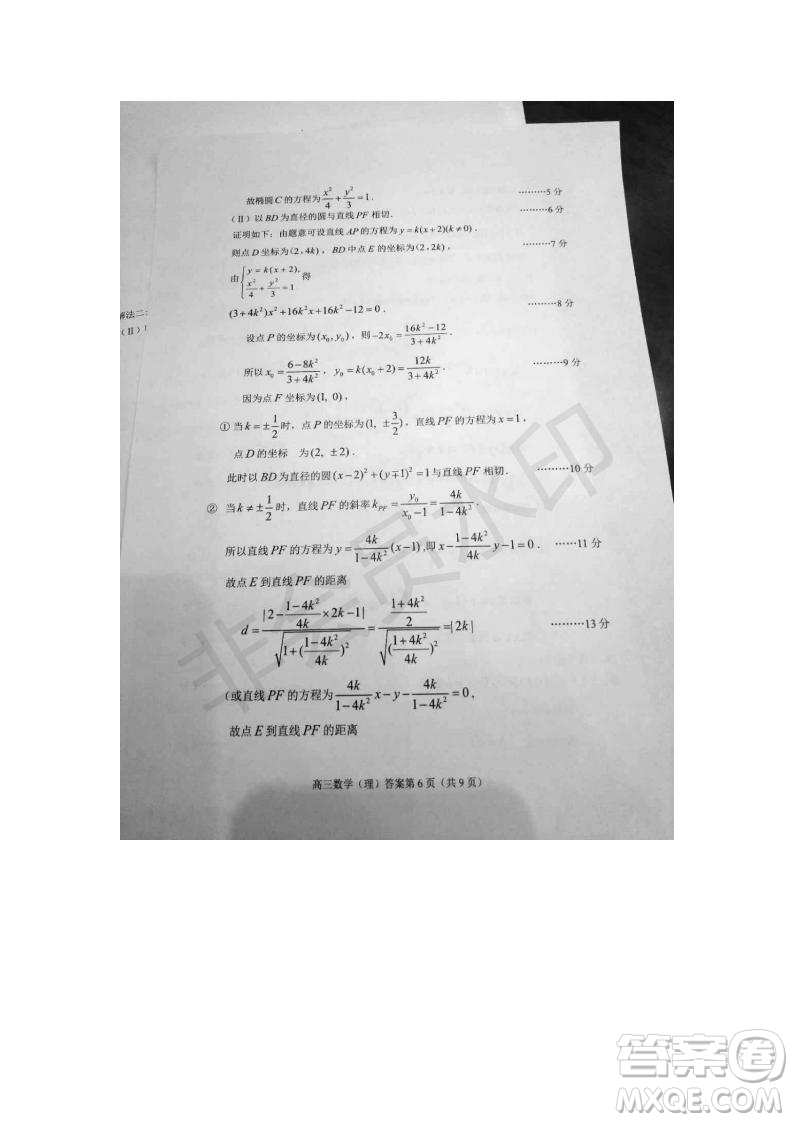 故椭圆C的方程为x²/4+y²/3=1. ………5分
(Ⅱ)以BD为直径的圆与直线PF相切. ………6分
证明如下:由题意可设直线AP的方程为y=k(x+2)(k≠0).
则点D坐标为(2,4k),BD中点E的坐标为(2,2k), ………7分
由{y=k(x+2), x²/4+y²/3=1 得
解法二:
(3+4k²)x²+16k²x+16k²-12=0. ………8分
(Ⅱ)
设点P的坐标为(x₀,y₀),则-2x₀=(16k²-12)/(3+4k²).
所以x₀=(6-8k²)/(3+4k²),y₀=k(x₀+2)=12k/(3+4k²). ………9分
因为点F坐标为(1,0),
①当k=±1/2时,点P的坐标为(1,±3/2),直线PF的方程为x=1,
点D的坐标 为(2,±2).
此时以BD为直径的圆(x-2)²+(y∓1)²=1与直线PF相切. ………10分
② 当k≠±1/2时,直线PF的斜率k_PF=y₀/(x₀-1)=4k/(1-4k²).
所以直线PF的方程为y=4k/(1-4k²)(x-1),即x-(1-4k²)/(4k)y-1=0. ……11分
故点E到直线PF的距离
d=|2-(1-4k²)/(4k)×2k-1|/√(1+((1-4k²)/(4k))²)=((1+4k²)/2)/√(((1+4k²)/(4k))²)=|2k| ………13分
(或直线PF的方程为4k/(1-4k²)x-y-4k/(1-4k²)=0,
故点E到直线PF的距离
高三数学(理)答案第6页(共9页)
非会员水印
答案卷
MXQE.COM